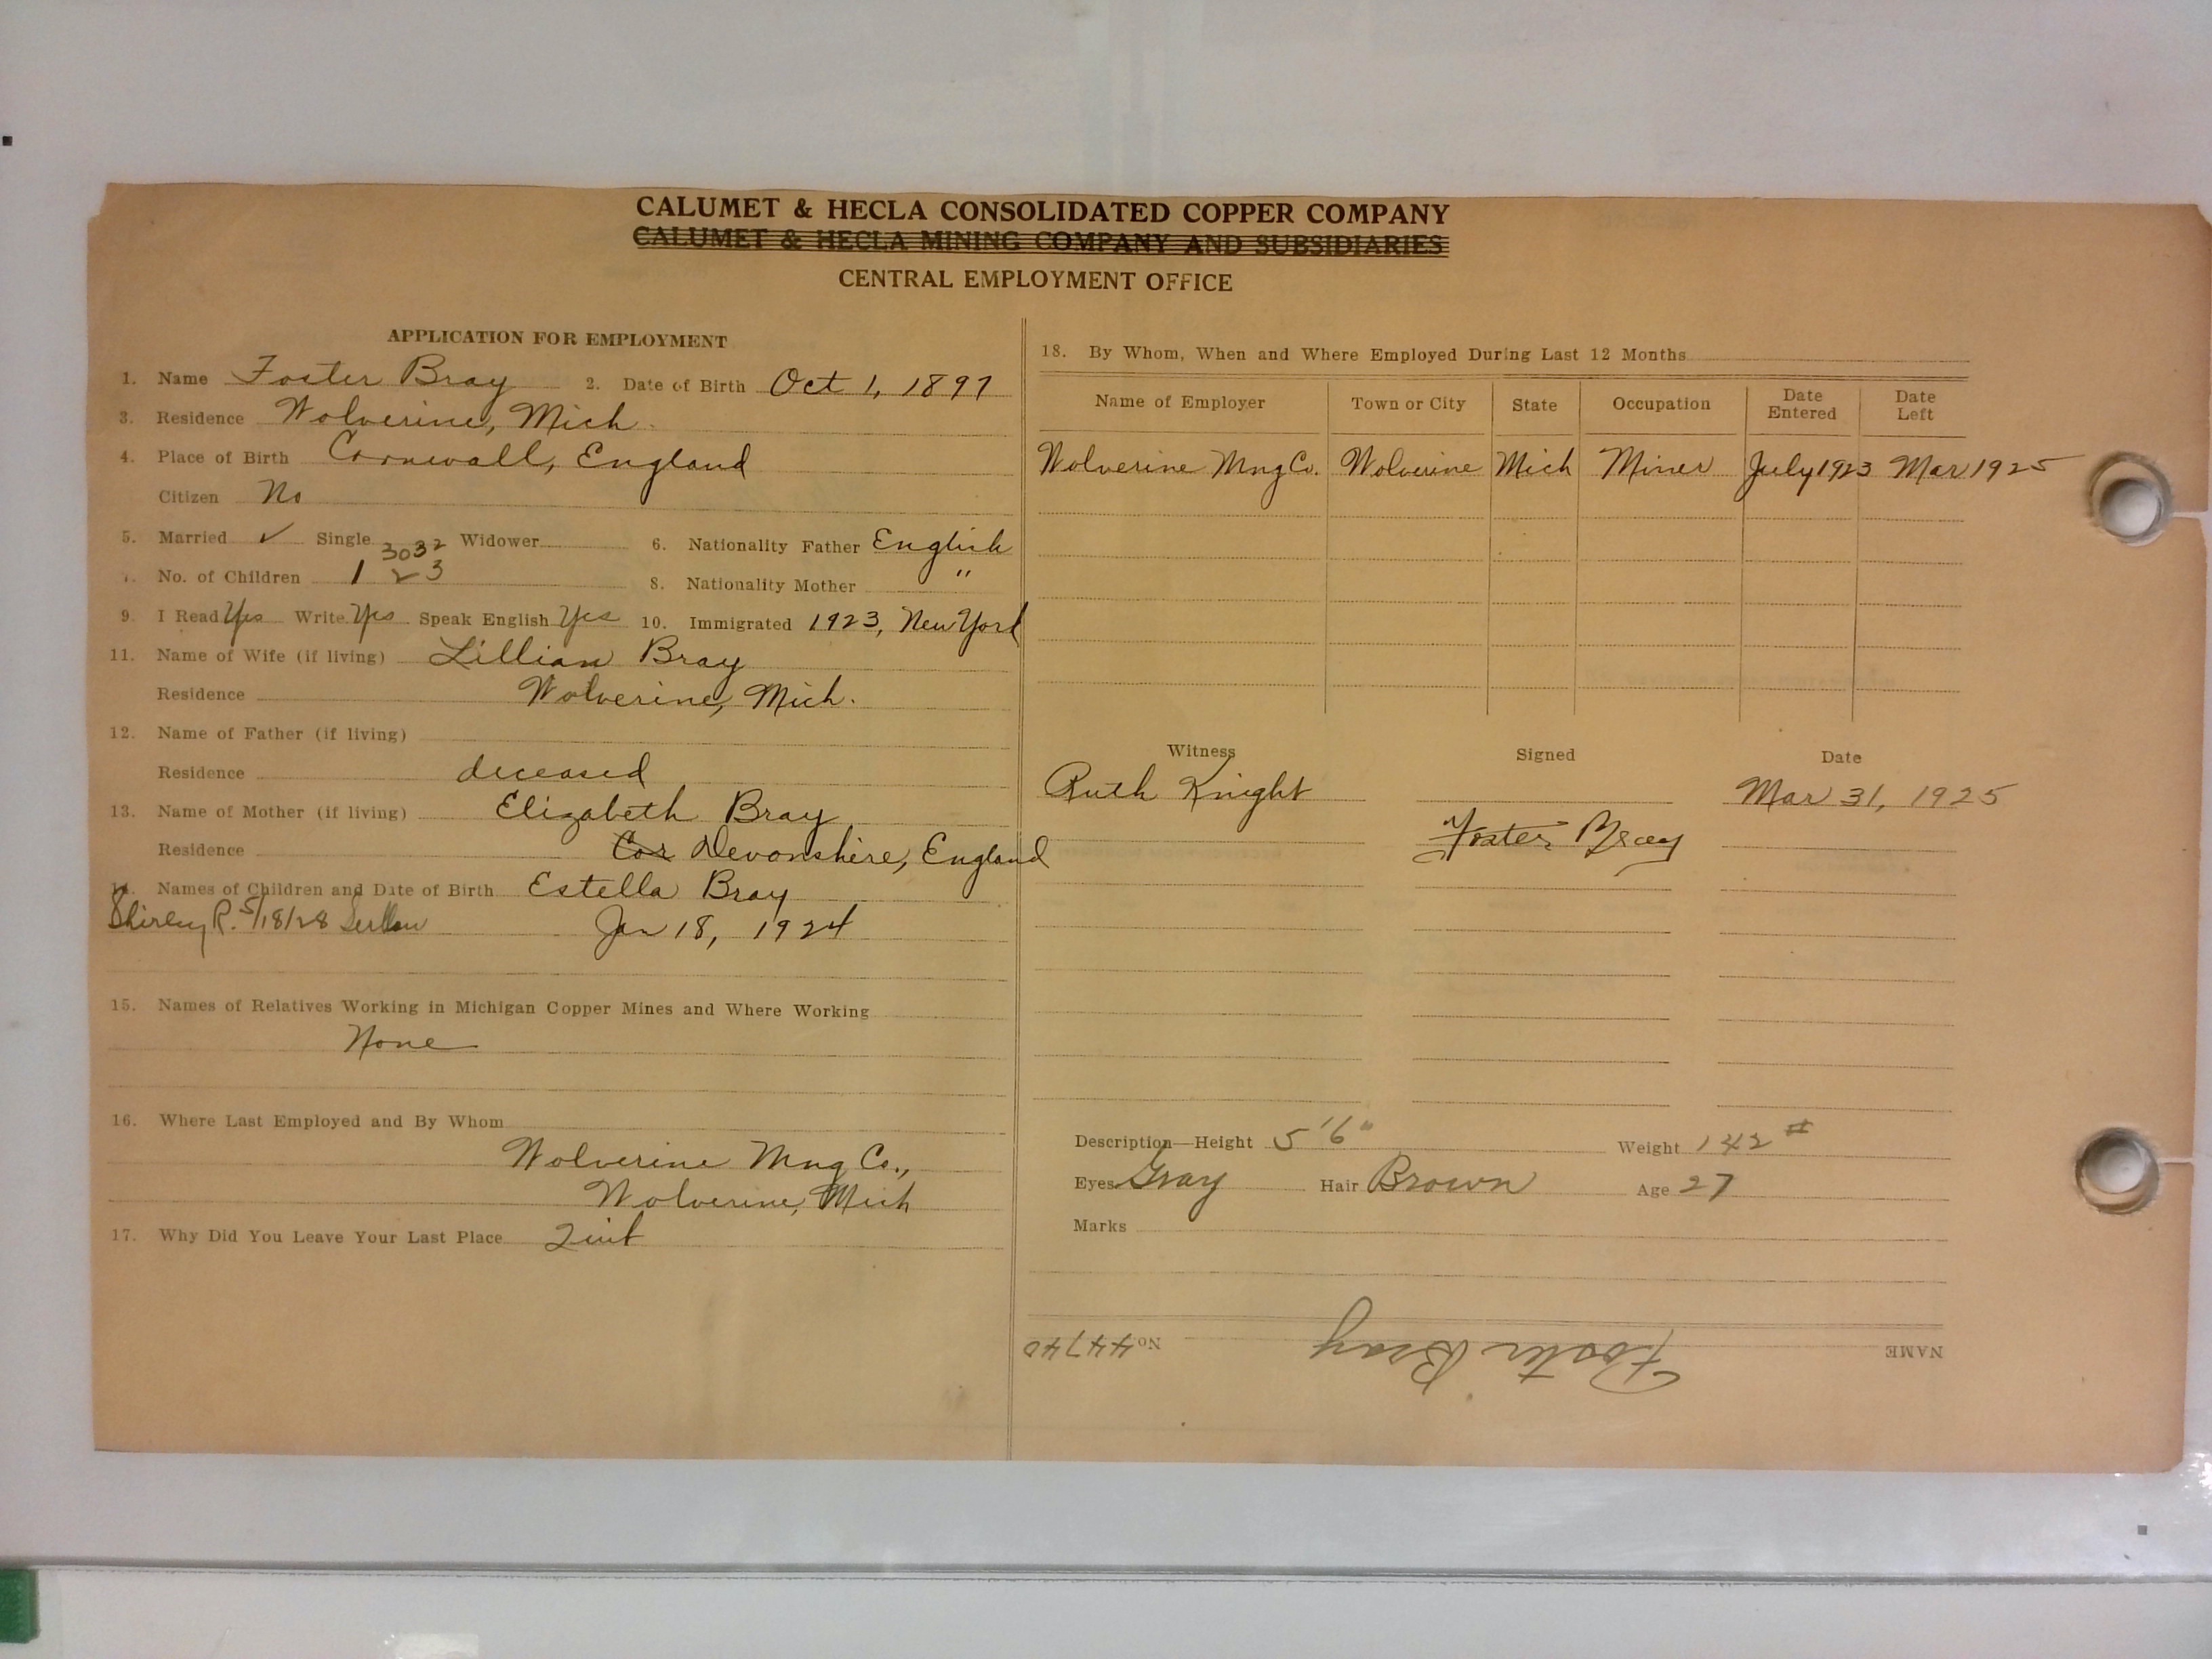 CALUMET & HECLA CONSOLIDATED COPPER COMPANY
CALUMET & HECLA MINING COMPANY AND SUBSIDIARIES
CENTRAL EMPLOYMENT OFFICE
APPLICATION FOR EMPLOYMENT
1. Name Foster Bray 2. Date of Birth Oct 1, 1897
3. Residence Wolverine, Mich.
4. Place of Birth Cornwall, England
Citizen No
5. Married ✓ Single Widower 6. Nationality Father English
3032
7. No. of Children 1 2 3 8. Nationality Mother "
9. I Read Yes Write Yes Speak English Yes 10. Immigrated 1923, New York
11. Name of Wife (if living) Lillian Bray
Residence Wolverine, Mich.
12. Name of Father (if living)
Residence deceased
13. Name of Mother (if living) Elizabeth Bray
Residence Cor Devonshire, England
14. Names of Children and Date of Birth Estella Bray
Shirley R. 5/18/28 Jan 18, 1924
15. Names of Relatives Working in Michigan Copper Mines and Where Working
None
16. Where Last Employed and By Whom
Wolverine Mng Co.,
Wolverine, Mich
17. Why Did You Leave Your Last Place Quit
18. By Whom, When and Where Employed During Last 12 Months
Name of Employer Town or City State Occupation Date Entered Date Left
Wolverine Mng Co. Wolverine Mich Miner July 1923 Mar 1925
Witness Signed Date
Ruth Knight Mar 31, 1925
Foster Bray
Description—Height 5'6" Weight 142 #
Eyes Gray Hair Brown Age 27
Marks
NAME Foster Bray No 44740